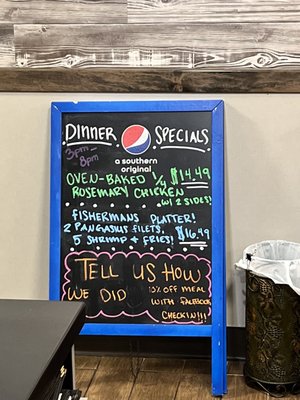 DINNER SPECIALS
3pm-
8pm
a southern
original
OVEN-BAKED 1/4 $14.49
ROSEMARY CHICKEN
W/ 2 SIDES!
FISHERMANS PLATTER!
2 PANGASIUS FILETS,
5 SHRIMP & FRIES! $16.49
TELL US HOW
WE DID
10% OFF MEAL
WITH FACEBOOK
CHECKIN!!!